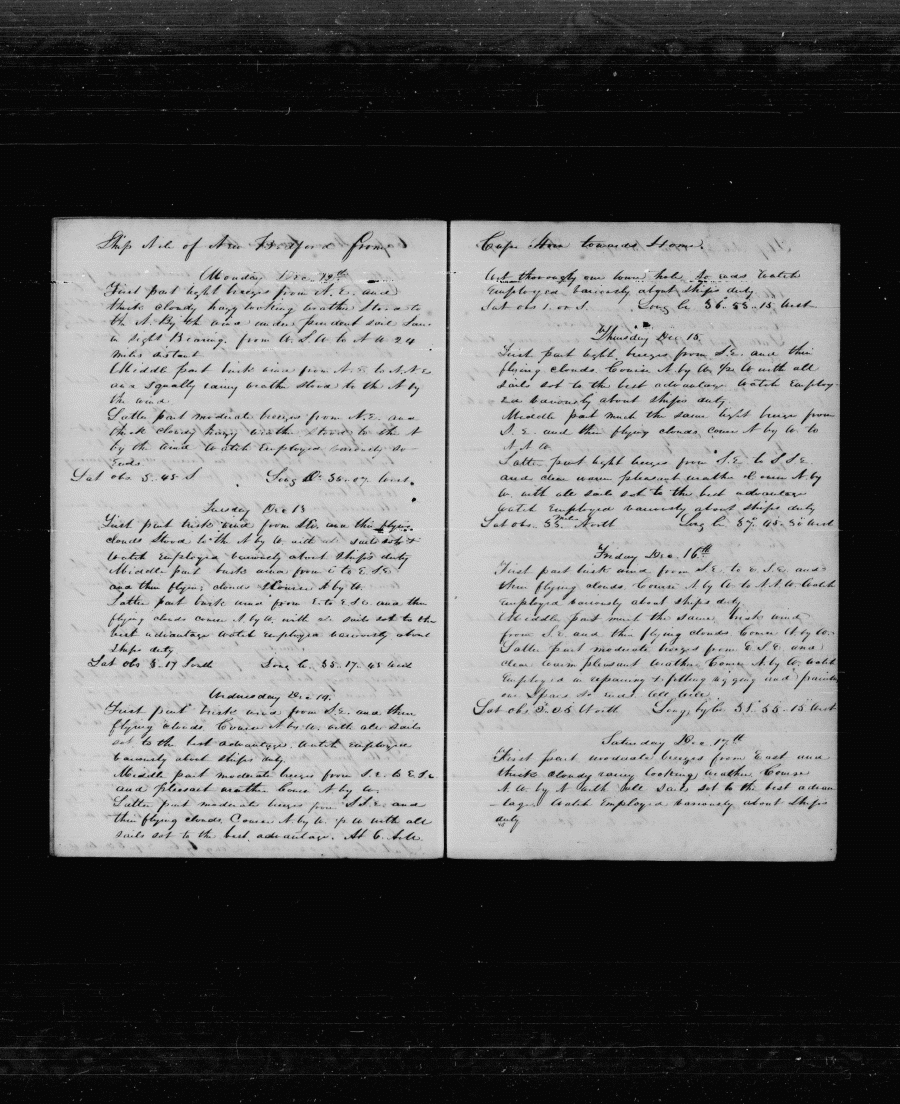 Ship Nile of New Bedford from
Monday Dec 12th
First part light breezes from N.E. and
thick cloudy hazy looking weather Stood to
the N. By the wind under prudent sail Land
in sight Bearing from W.S.W to N W 24
miles distant
Middle part brisk wind from N.E. to N.N.E
and squally rainy weather stood to the N by
the wind
Latter part moderate breezes from N.E. and
thick cloudy hazy weather stood to the N
by the wind Watch Employed variously so
Ends.
Lat obs 5..48 S Long 35..07 West.
Tuesday Dec 13
First part brisk wind from and thin flying
clouds stood to the N by W. with all sails set
Watch Employed variously about ships duty
Middle part brisk wind from E to E.S.E.
and thin flying clouds Course N by W.
Latter part brisk wind from E. to E.S.E. and thin
flying clouds course N by W. with all sails set to the
best advantage Watch Employed variously about
Ships duty
Lat obs 3..17 South Long by 35..17..45 West
Wednesday Dec 14.
First part brisk wind from S.E. and thin
flying clouds. Course N by W. with all sails
set to the best advantage. Watch employed
variously about ships duty
Middle part moderate breezes from S.E. to E.S.E.
and pleasant weather Course N by W.
Latter part moderate breezes from S.S.E. and
thin flying clouds. Course N by W. 1/2 W with all
sails set to the best advantage. At 6
Cape Horn towards Home.
thoroughly one hole so ends Watch
Employed variously about Ships duty
Lat obs 1..00 S. Long by 36..53..15 West
Thursday Dec 15
First part light breezes from S.E. and thin
flying clouds. Course N by W. 1/2 W with all
sails set to the best advantage Watch Employ-
ed variously about ships duty.
Middle part much the same light breeze from
S.E. and thin flying clouds. course N by W. to
N.N.W.
Latter part light breezes from S.E. to S.S.E
and clear warm pleasant weather Course N by
W. with all sails set to the best advantage
Watch Employed variously about ships duty
Lat obs. 53 mil North Long by 37..45..30 West
Friday Dec. 16th
First part brisk wind from S.E. to E.S.E. and
thin flying clouds. Course N by W to N.N.W. Watch
Employed variously about ships duty
Middle part much the same brisk wind
from S.E. and thin flying clouds Course N by W.
Latter part moderate breezes from E.S.E. and
clear warm pleasant weather Course N by W. Watch
Employed in repairing & fitting rigging and painting
our Spars so ends all well.
Lat obs 3..05 North Long by 55..15 West
Saturday Dec. 17th
First part moderate breezes from East and
thick cloudy rainy looking weather Course
N.W. by N with all sails set to the best advan
-tage Watch Employed variously about Ships
duty